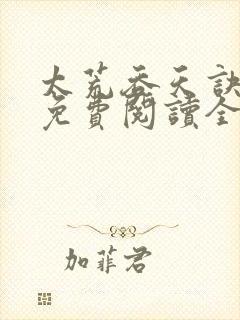 太荒吞天訣
免費閱讀全
加菲君